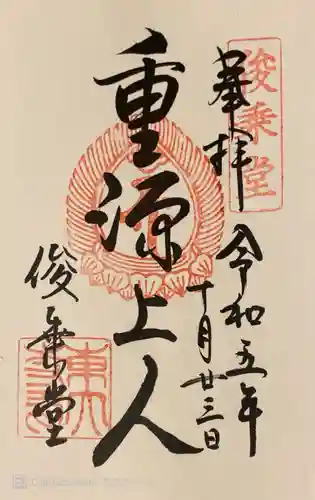 奉拝
俊乗堂
令和五年
十月廿三日
重源上人
俊乗堂